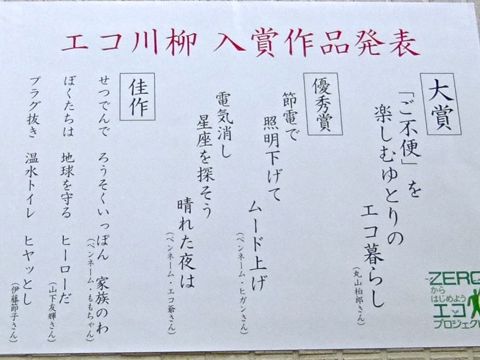 エコ川柳 入賞作品発表
大賞
「ご不便」を
楽しむゆとりの
エコ暮らし
(丸山祐郎さん)
優秀賞
節電で
照明下げて
ムード上げ
(ペンネーム・ヒガンさん)
電気消し
星座を探そう
晴れた夜は
(ペンネーム・エコ爺さん)
佳作
せつでんで ろうそくいっぽん 家族のわ
(ペンネーム・ももちゃん)
ぼくたちは 地球を守る ヒーローだ
(山下友輝さん)
プラグ抜き 温水トイレ ヒヤッとし
(伊藤節子さん)
ZERO
から
はじめよう
エコ
プロジェクト